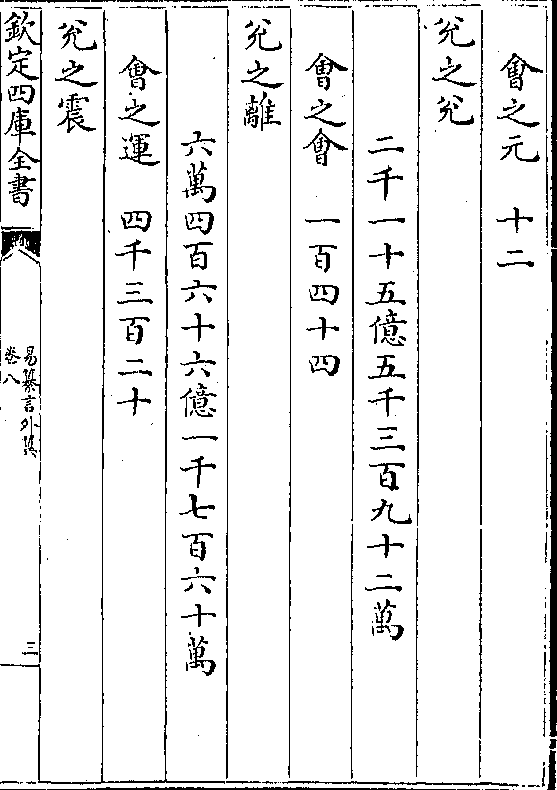 會之元　十二
兊之兊
二千一十五億五千三百九十二萬
會之會　一百四十四
兊之離
六萬四百六十六億一千七百六十萬
會之運　四千三百二十
兊之震
欽定四庫全書
易纂言外翼
卷八
三